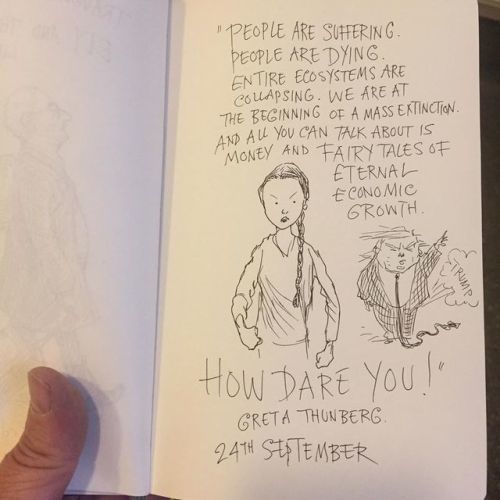 "PEOPLE ARE SUFFERING.
PEOPLE ARE DYING.
ENTIRE ECOSYSTEMS ARE
COLLAPSING. WE ARE AT
THE BEGINNING OF A MASS EXTINCTION.
AND ALL YOU CAN TALK ABOUT IS
MONEY AND FAIRY TALES OF
ETERNAL
ECONOMIC
GROWTH.
TRUMP
HOW DARE YOU!"
GRETA THUNBERG.
24TH SEPTEMBER